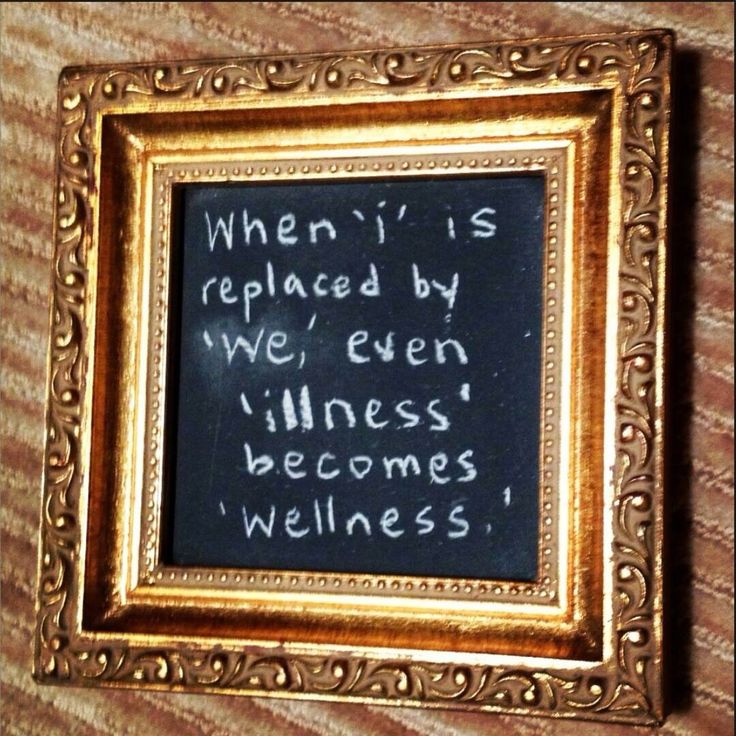 When 'i' is
replaced by
'we,' even
'illness'
becomes
'wellness.'